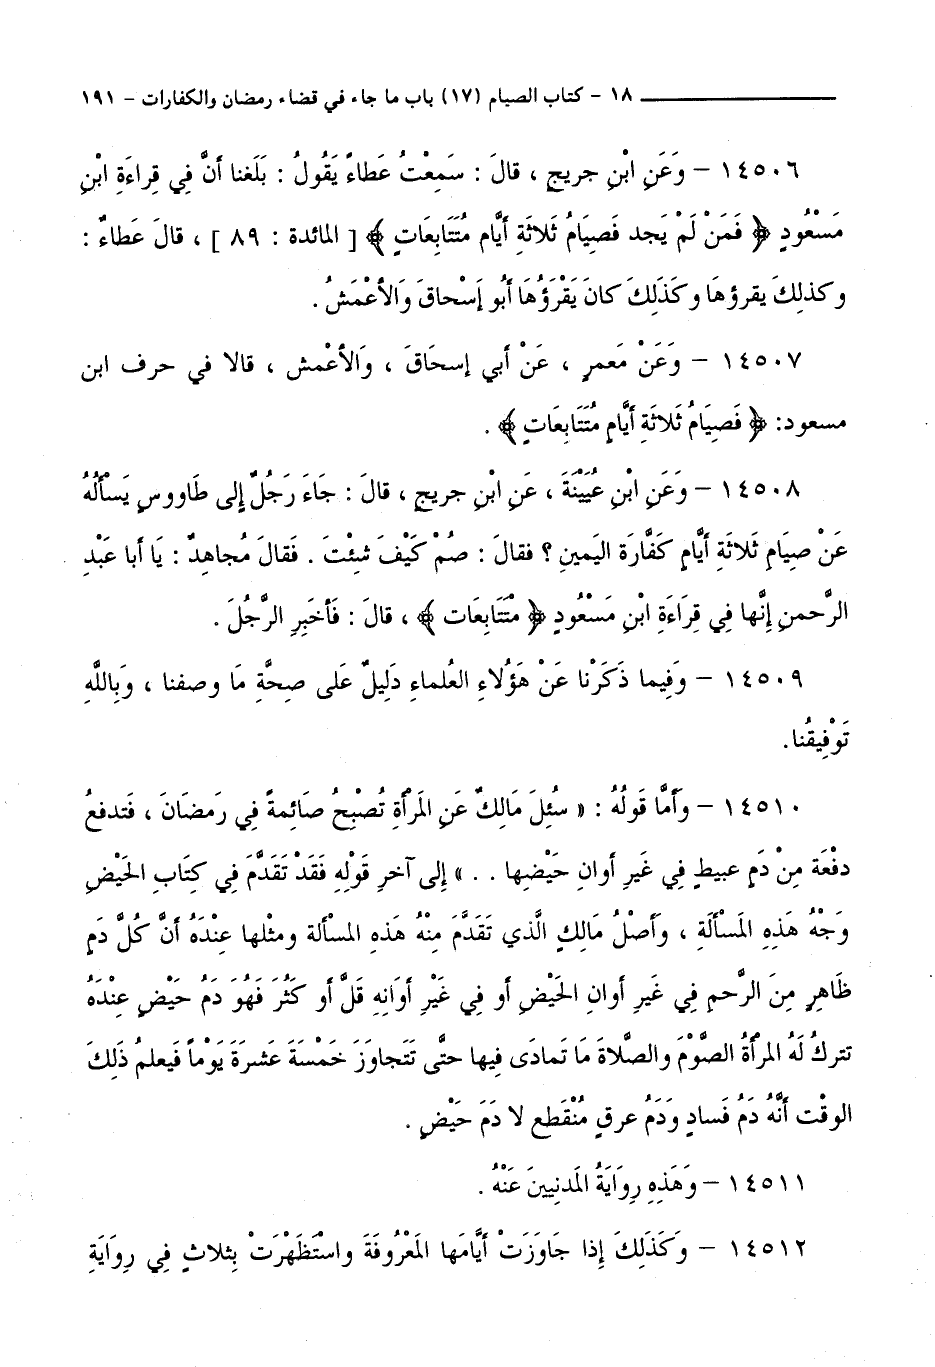 ١٨ - كتاب الصيام (١٧) باب ما جاء في قضاء رمضان والكفارات - ١٩١
١٤٥٠٦ - وَعَنِ ابْنِ جريج ، قالَ : سَمِعْتُ عَطاءً يَقُولُ : بَلَغنا أَنَّ فِي قِراءَةِ ابْنِ
مَسْعُودٍ ﴿ فَمَنْ لَمْ يَجد فَصِيَامُ ثَلاثَةِ أيَّام مُتَتَابِعَاتٍ ﴾ [ المائدة : ٨٩ ] ، قالَ عَطاءٌ :
وكذلِكَ يقرؤهَا وكَذَلِكَ كانَ يَقْرَؤُهَا أَبُو إَسْحاقَ وَالأعْمَشُ .
١٤٥٠٧ - وَعَنْ مَعمرٍ ، عَنْ أَبي إسحَاقَ ، وَالأعْمش ، قالا في حرف ابن
مسعود: ﴿ فَصِيَامُ ثَلاثَةِ أَيَّامٍ مُتَتَابِعَاتٍ ﴾ .
١٤٥٠٨ - وَعَنِ ابْنِ عُيَيْنَةَ ، عَنِ ابْنِ جريج ، قالَ : جَاءَ رَجُلٌ إلى طَاووسٍ يَسْأَلُهُ
عَنْ صِيَامِ ثَلاثَةِ أَيَّامٍ كَفَّارَة اليَمينِ ؟ فقالَ : صُمْ كَيْفَ شِئْتَ . فَقالَ مُجاهِدٌ : يَا أبا عَبْدِ
الرَّحمنِ إنَّها فِي قِرَاءَةِ ابْنِ مَسْعُودٍ ﴿ مُتَتَابِعَات ﴾ ، قالَ : فَأخبِرِ الرَّجُلَ .
١٤٥٠٩ - وَفِيما ذَكَرْنا عَنْ هَؤُلاءِ العُلماءِ دَلِيلٌ عَلى صِحَّةِ مَا وصفنا ، وَبِاللَّهِ
تَوْفِيقُنا.
١٤٥١٠ - وَأَمَّا قَولُهُ : « سئُلَ مَالِكٌ عَنِ المَرْأَةِ تُصْبحُ صَائِمةً فِي رَمضَانَ ، فَتدفعُ
دفْعَة مِنْ دَمٍ عبيطٍ فِي غَيرِ أوانِ حَيْضِها . . » إلى آخرِ قَولِهِ فَقَدْ تَقَدَّمَ فِي كِتَابِ الحَيْضِ
وَجْهُ هَذِهِ المَسْأَلَةِ ، وَأصْلُ مَالِكٍ الَّذي تَقَدَّمَ مِنْهُ هَذهِ المسْألة ومثْلها عِنْدَهُ أَنَّ كُلَّ دَمٍ
ظَاهِرٍ مِنَ الرَّحمِ فِي غَيرِ أوانِ الحَيْضِ أو فِي غَيْرِ أوَانِهِ قَلَّ أو كَثُرَ فَهُوَ دَمُ حَيْضٍ عِنْدَهُ
تتركُ لَهُ المرْأةُ الصَّوْمَ والصَّلاةَ مَا تَمادَى فِيها حتَّى تَتَجاوَزَ خَمْسَةَ عَشرَةَ يَوْماً فَيعلمُ ذَلِكَ
الوقْت أنَّهُ دَمُ فَسادٍ ودَمُ عرقٍ مُنْقَطع لا دَمَ حَيْضٍ .
١٤٥١١ - وَهَذِهِ رِوَايَةُ المَدنِيينَ عَنْهُ .
١٤٥١٢ - وَكَذَلِكَ إذا جَاوَزَتْ أيَّامَها المَعْرُوفَةَ واسْتَظْهَرَتْ بِثلاثٍ فِي رِوَايَةِ